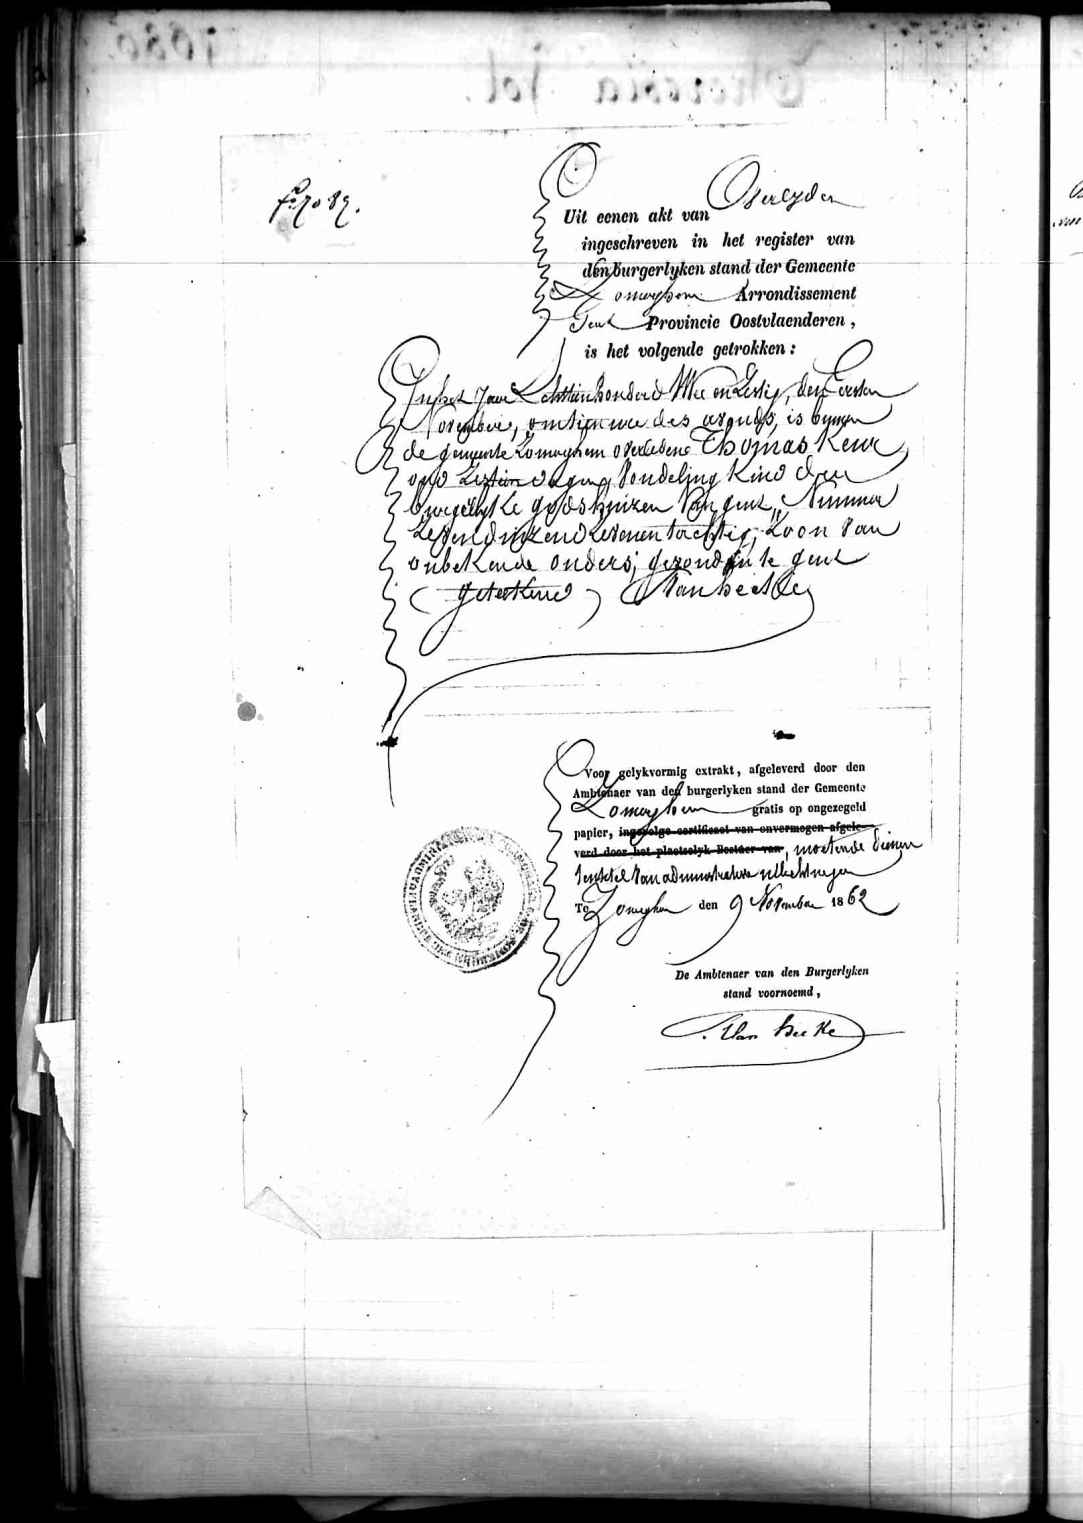 fo 7087.
Uit eenen akt van Overlyden
ingeschreven in het register van
den burgerlyken stand der Gemeente
Zomerghem Arrondissement
Gent Provincie Oostvlaenderen,
is het volgende getrokken:
In het jaar achttien honderd twee en zestig, den Eersten
November, om tien ure des avonds, is binnen
de gemeente Zomerghem overledene Thomas Keur
oud zestien dagen, Vondeling Kind der
burgerlyke godshuizen Van gent, Nummer
zevenduizend zevenentachtig, Zoon van
onbekende ouders, gezonden te gent
( geteekend ) Van hecke
Voor gelykvormig extrakt, afgeleverd door den
Ambtenaer van den burgerlyken stand der Gemeente
Zomerghem gratis op ongezegeld
papier, ingevolge certificaet van onvermogen afgele-
verd door het plaetselyk Bestuer van, moetende dienen
tentitel van administrative inlichtingen
Te Zomerghem den 9 November 1862
De Ambtenaer van den Burgerlyken
stand voornoemd,
Van hecke